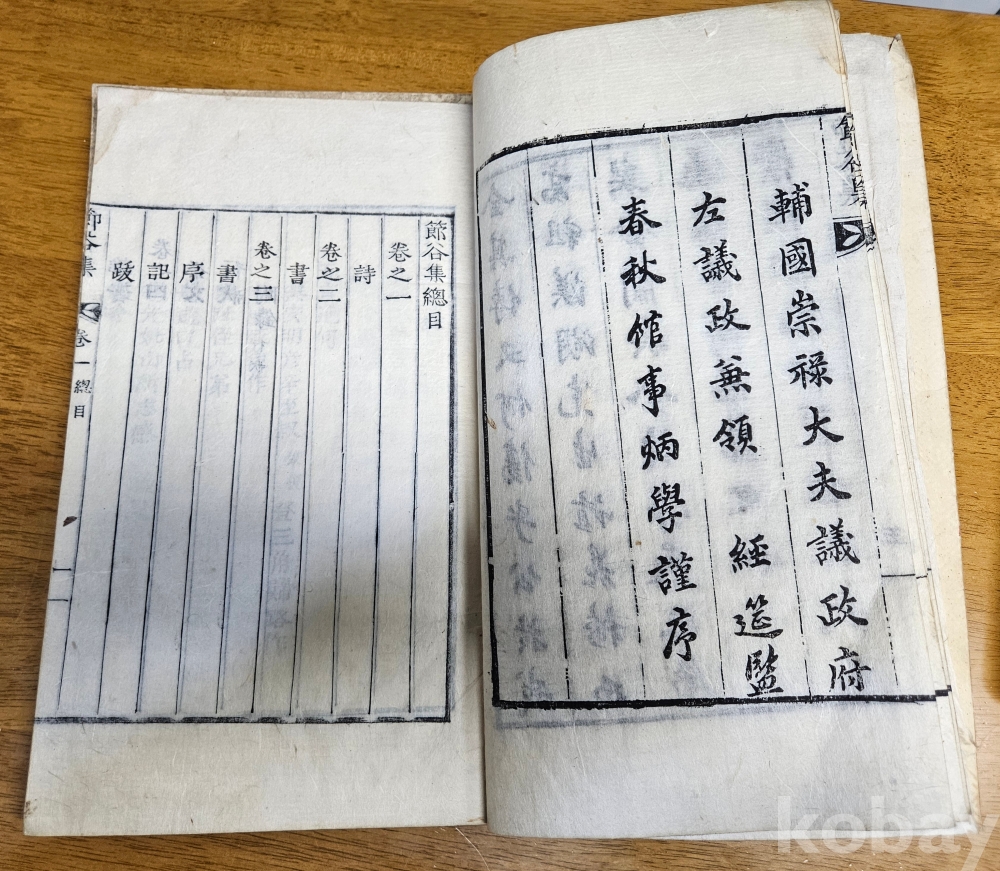 輔國崇祿大夫議政府
左議政兼領 經筵監
春秋館事炳學謹序
節谷集
節谷集總目
卷之一
詩
卷之二
書
卷之三
書
序
記
跋
節谷集 卷一 總目 一
kobay